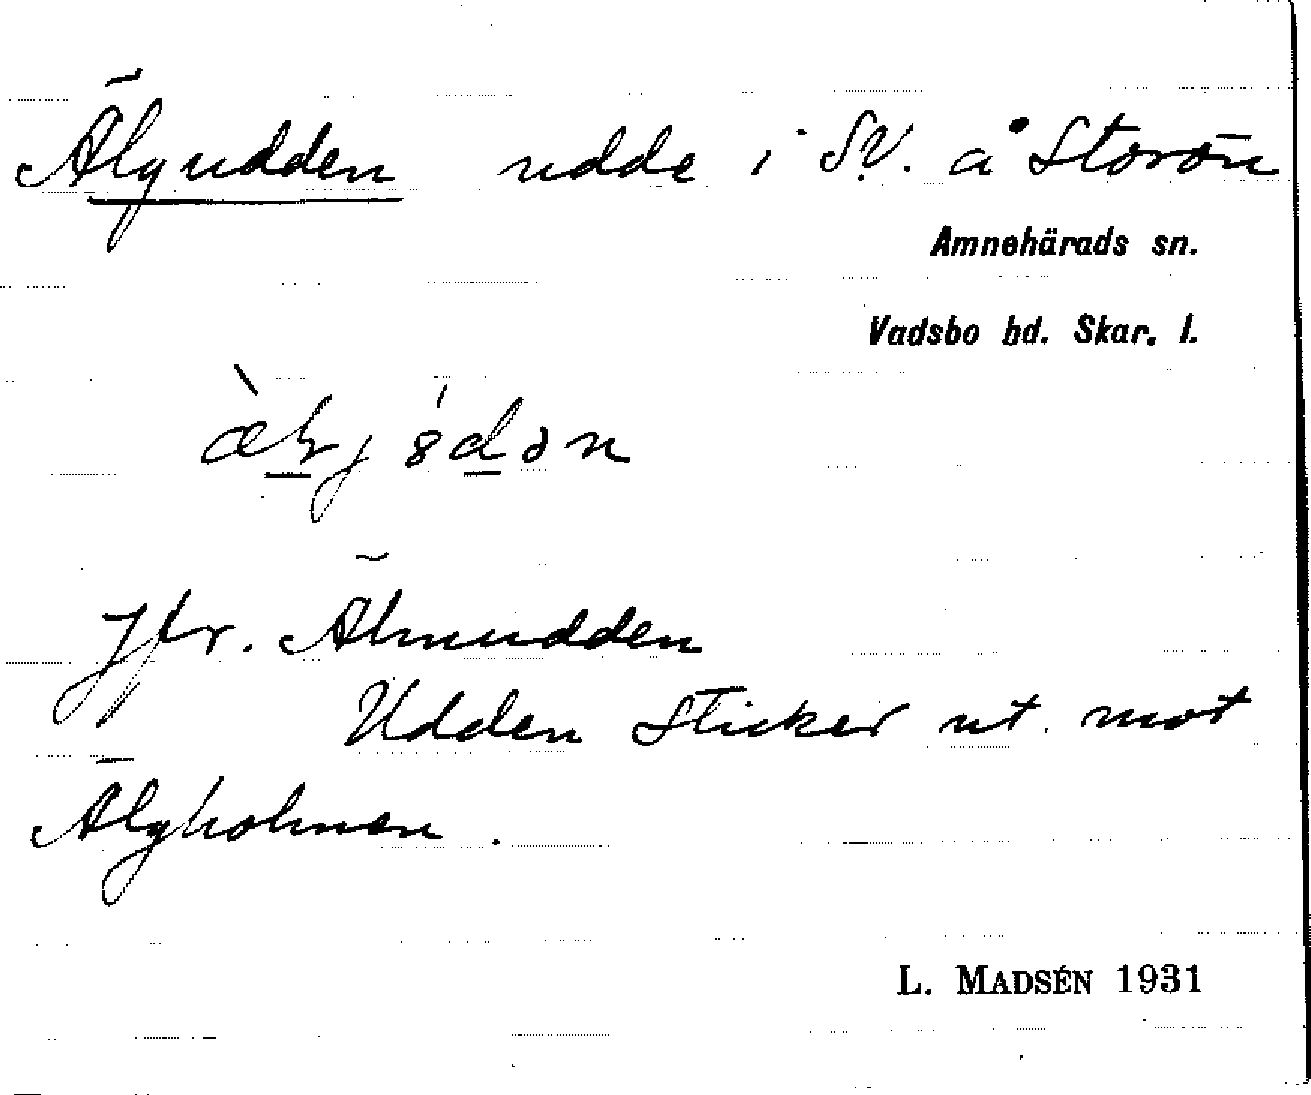 Älgudden udde i SV. å Storön
Amnehärads sn.
Vadsbo hd. Skar. l.
Jfr. Älmudden
Udden sticker ut mot
Älgholmen.
L. MADSÉN 1931